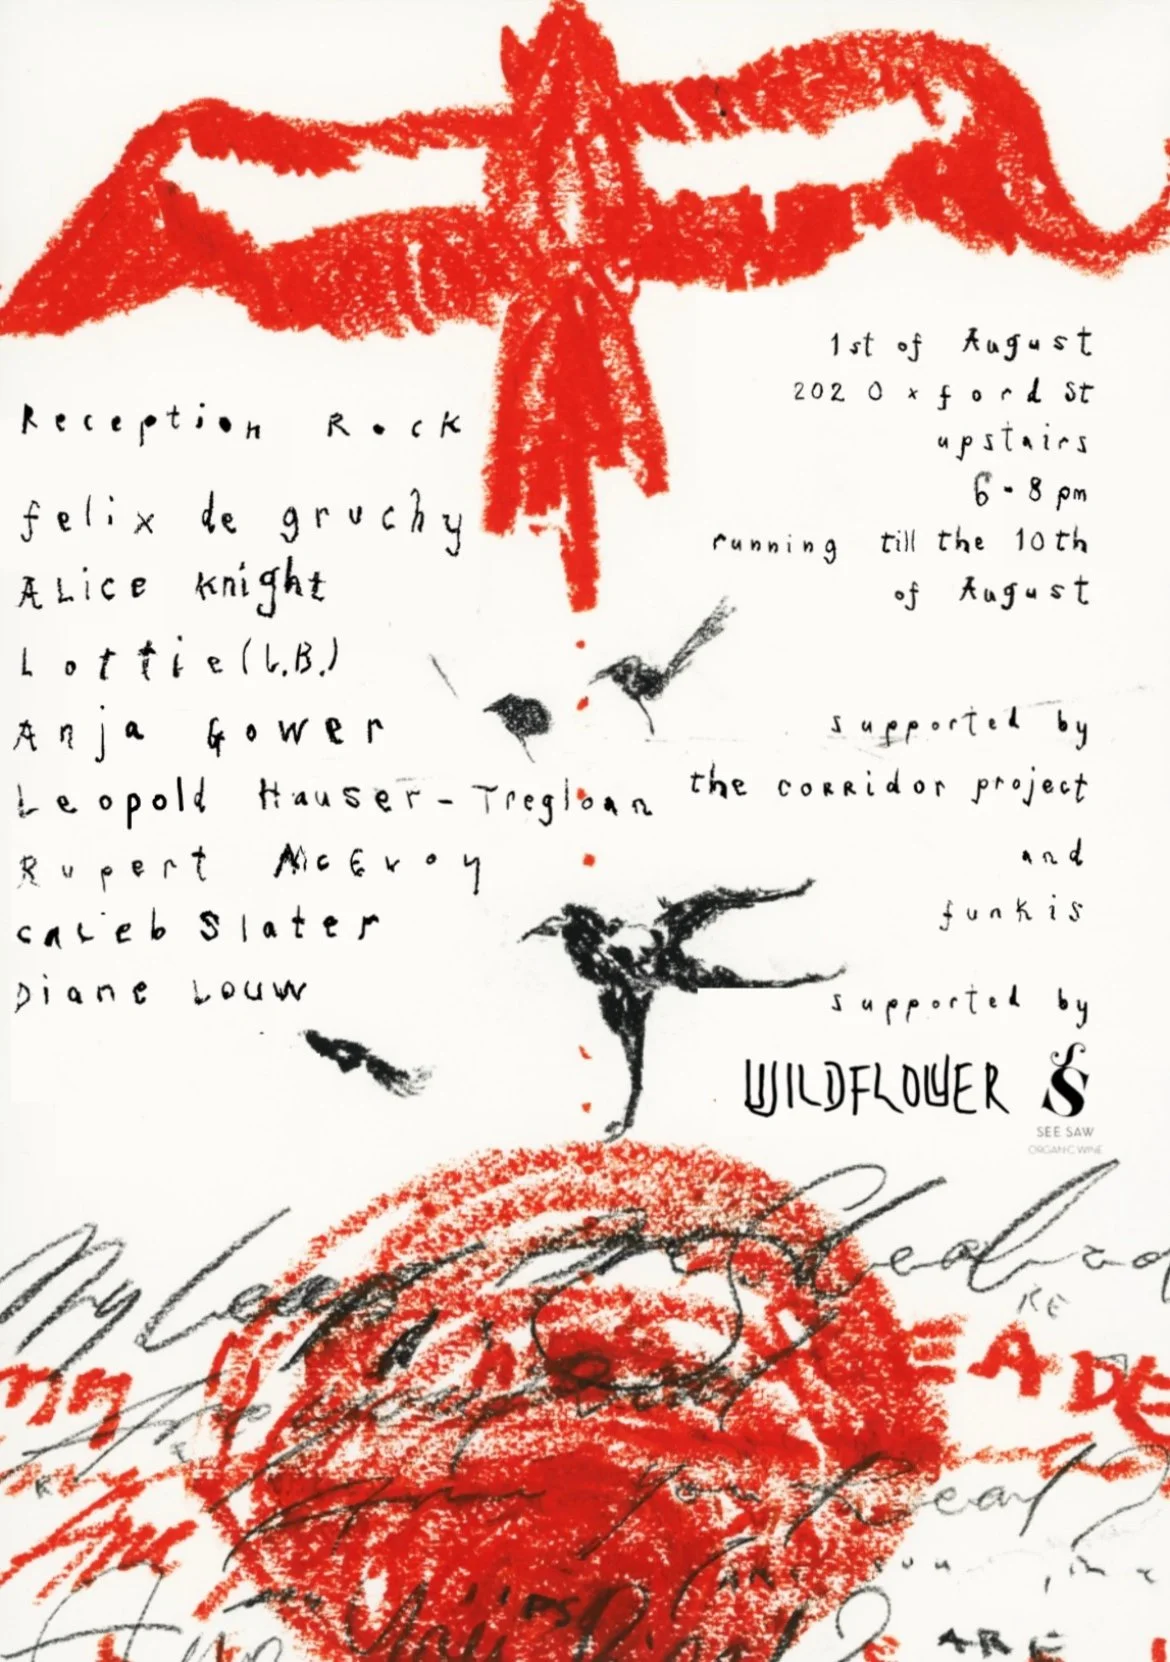 Reception Rock
felix de gruchy
ALice Knight
Lottie (L.B.)
Anja Gower
Leopold Hauser-Tregloan
Rupert McEvoy
caleb Slater
Diane Louw
1st of August
202 Oxford St
upstairs
6-8 pm
running till the 10th
of August
supported by
the corridor project
and
funkis
supported by
WILDFLOWER
SEE SAW
ORGANIC WINE
My
RE
Are you
you
ARE